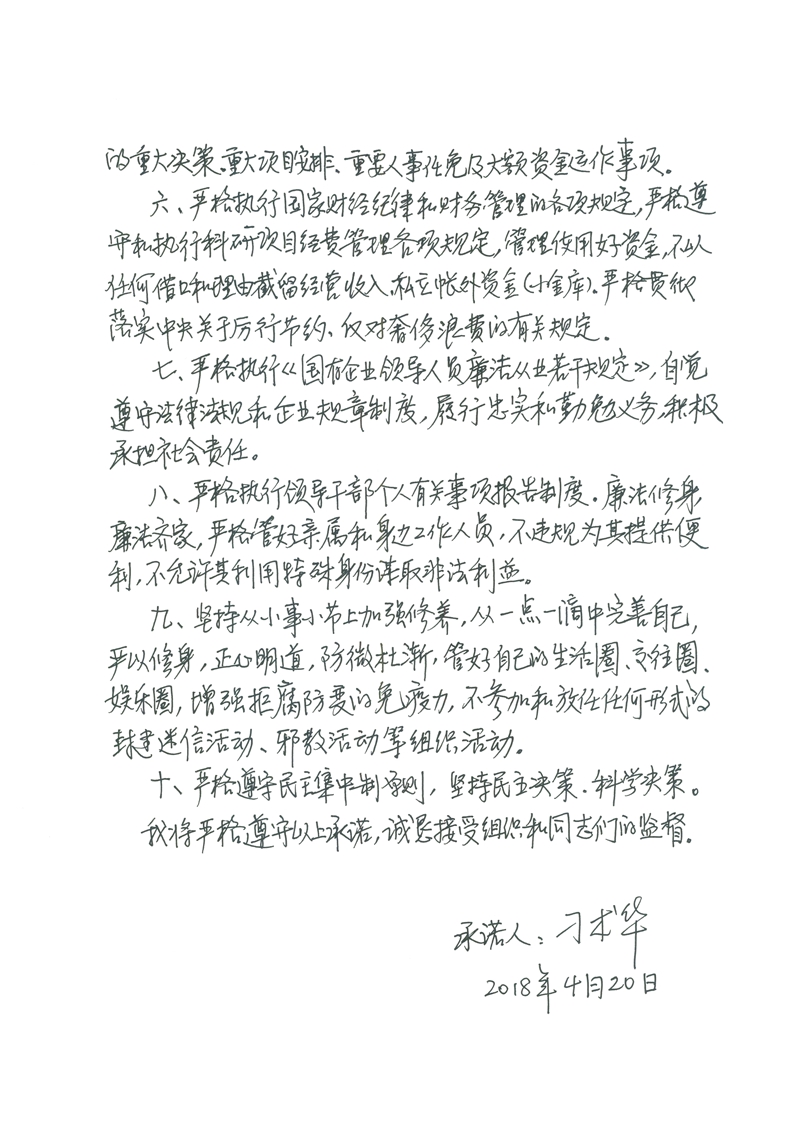 的重大决策、重大项目安排、重要人事任免及大额资金运作事项。
六、严格执行国家财经纪律和财务管理的各项规定，严格遵
守和执行科研项目经费管理各项规定，管理使用好资金，不以
任何借口和理由截留经营收入、私立帐外资金（小金库）。严格贯彻
落实中央关于厉行节约、反对奢侈浪费的有关规定。
七、严格执行《国有企业领导人员廉洁从业若干规定》，自觉
遵守法律法规和企业规章制度，履行忠实和勤勉义务，积极
承担社会责任。
八、严格执行领导干部个人有关事项报告制度。廉洁修身，
廉洁齐家，严格管好亲属和身边工作人员，不违规为其提供便
利，不允许其利用特殊身份谋取非法利益。
九、坚持从小事小节上加强修养，从一点一滴中完善自己，
严以修身，正心明道，防微杜渐，管好自己的生活圈、交往圈、
娱乐圈，增强拒腐防变的免疫力，不参加和放任任何形式的
封建迷信活动、邪教活动等组织活动。
十、严格遵守民主集中制原则，坚持民主决策、科学决策。
我将严格遵守以上承诺，诚恳接受组织和同志们的监督。
承诺人：刁术华
2018年4月20日